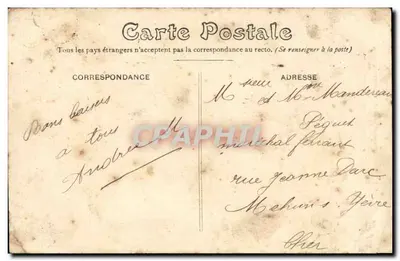 Carte Postale
Tous les pays étrangers n'acceptent pas la correspondance au recto. (Se renseigner à la poste)
CORRESPONDANCE
ADRESSE
Bons baisers
a tous
André M
Mr et Mme
maréchal ferrant
rue Jeanne Darc
Mehun s Yèvre
Cher
CPAPHIL